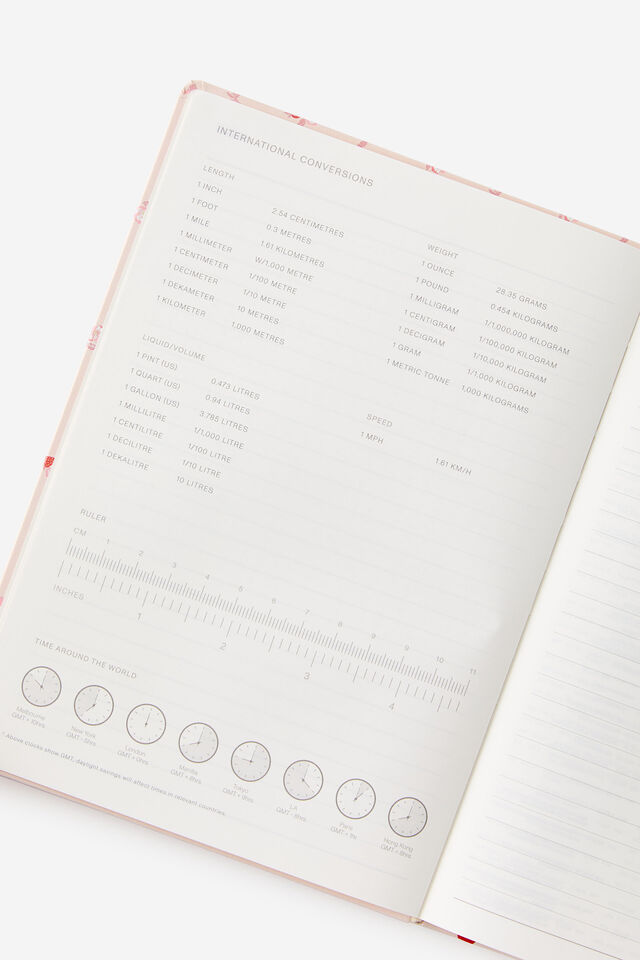 INTERNATIONAL CONVERSIONS
LENGTH
1 INCH 2.54 CENTIMETRES
1 FOOT 0.3 METRES
1 MILE 1.61 KILOMETRES
1 MILLIMETER W/1,000 METRE
1 CENTIMETER 1/100 METRE
1 DECIMETER 1/10 METRE
1 DEKAMETER 10 METRES
1 KILOMETER 1,000 METRES
WEIGHT
1 OUNCE 28.35 GRAMS
1 POUND 0.454 KILOGRAMS
1 MILLIGRAM 1/1,000,000 KILOGRAM
1 CENTIGRAM 1/100,000 KILOGRAM
1 DECIGRAM 1/10,000 KILOGRAM
1 GRAM 1/1,000 KILOGRAM
1 METRIC TONNE 1,000 KILOGRAMS
LIQUID/VOLUME
1 PINT (US) 0.473 LITRES
1 QUART (US) 0.94 LITRES
1 GALLON (US) 3.785 LITRES
1 MILLILITRE 1/1,000 LITRE
1 CENTILITRE 1/100 LITRE
1 DECILITRE 1/10 LITRE
1 DEKALITRE 10 LITRES
SPEED
1 MPH 1.61 KM/H
RULER
CM 1 2 3 4 5 6 7 8 9 10 11
INCHES 1 2 3 4
TIME AROUND THE WORLD
Melbourne
GMT + 10hrs
New York
GMT - 5hrs
London
GMT + 0hrs
Manila
GMT + 8hrs
Tokyo
GMT + 9hrs
LA
GMT - 8hrs
Paris
GMT + 1hr
Hong Kong
GMT + 8hrs
*Above clocks show GMT, daylight savings will affect times in relevant countries.